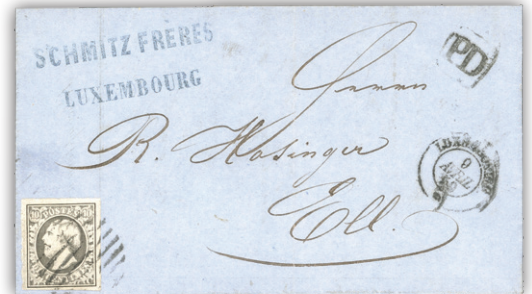 SCHMITZ FRÈRES
LUXEMBOURG
PD
Herrn
R. Hosinger
Ell.
9
AVRIL
POSTES